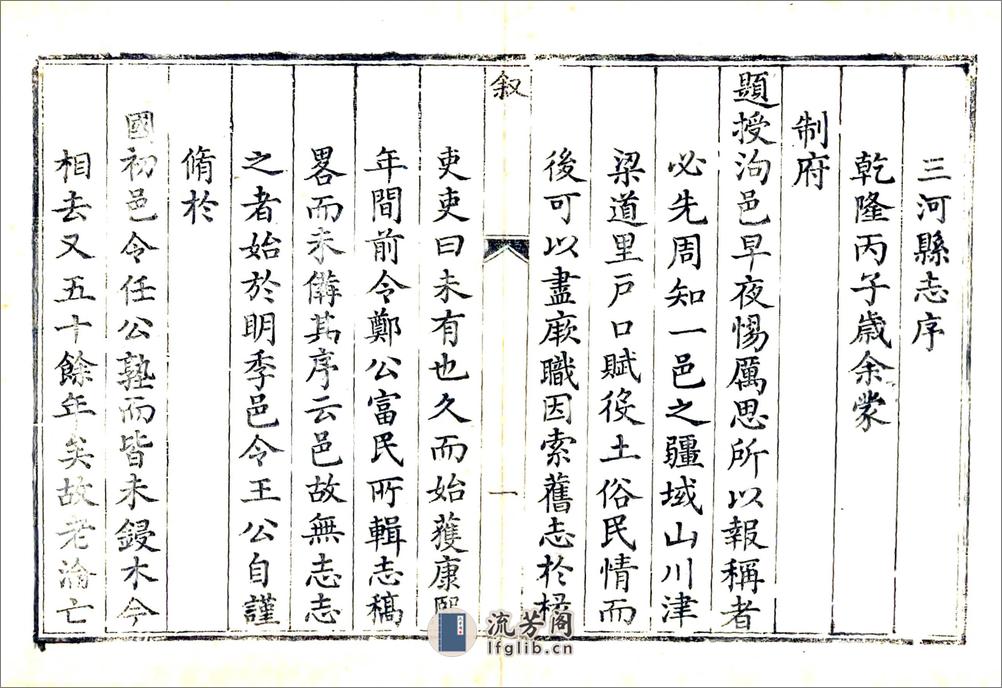 三河縣志序
乾隆丙子歲余蒙
制府
題授泃邑早夜惕厲思所以報稱者
必先周知一邑之疆域山川津
梁道里戸口賦役土俗民情而
後可以盡厥職因索舊志於掾
叙
一
吏吏曰未有也久而始獲康熙
年間前令鄭公富民所輯志稿
畧而未備其序云邑故無志志
之者始於明季邑令王公自謹
脩於
國初邑令任公塾而皆未鋟木今
相去又五十餘年矣故老淪亡
流芳阁
lfglib.cn